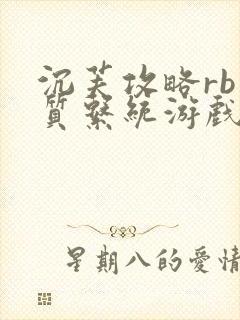 沉芙攻略rb
質繫統游戲
星期八的愛情